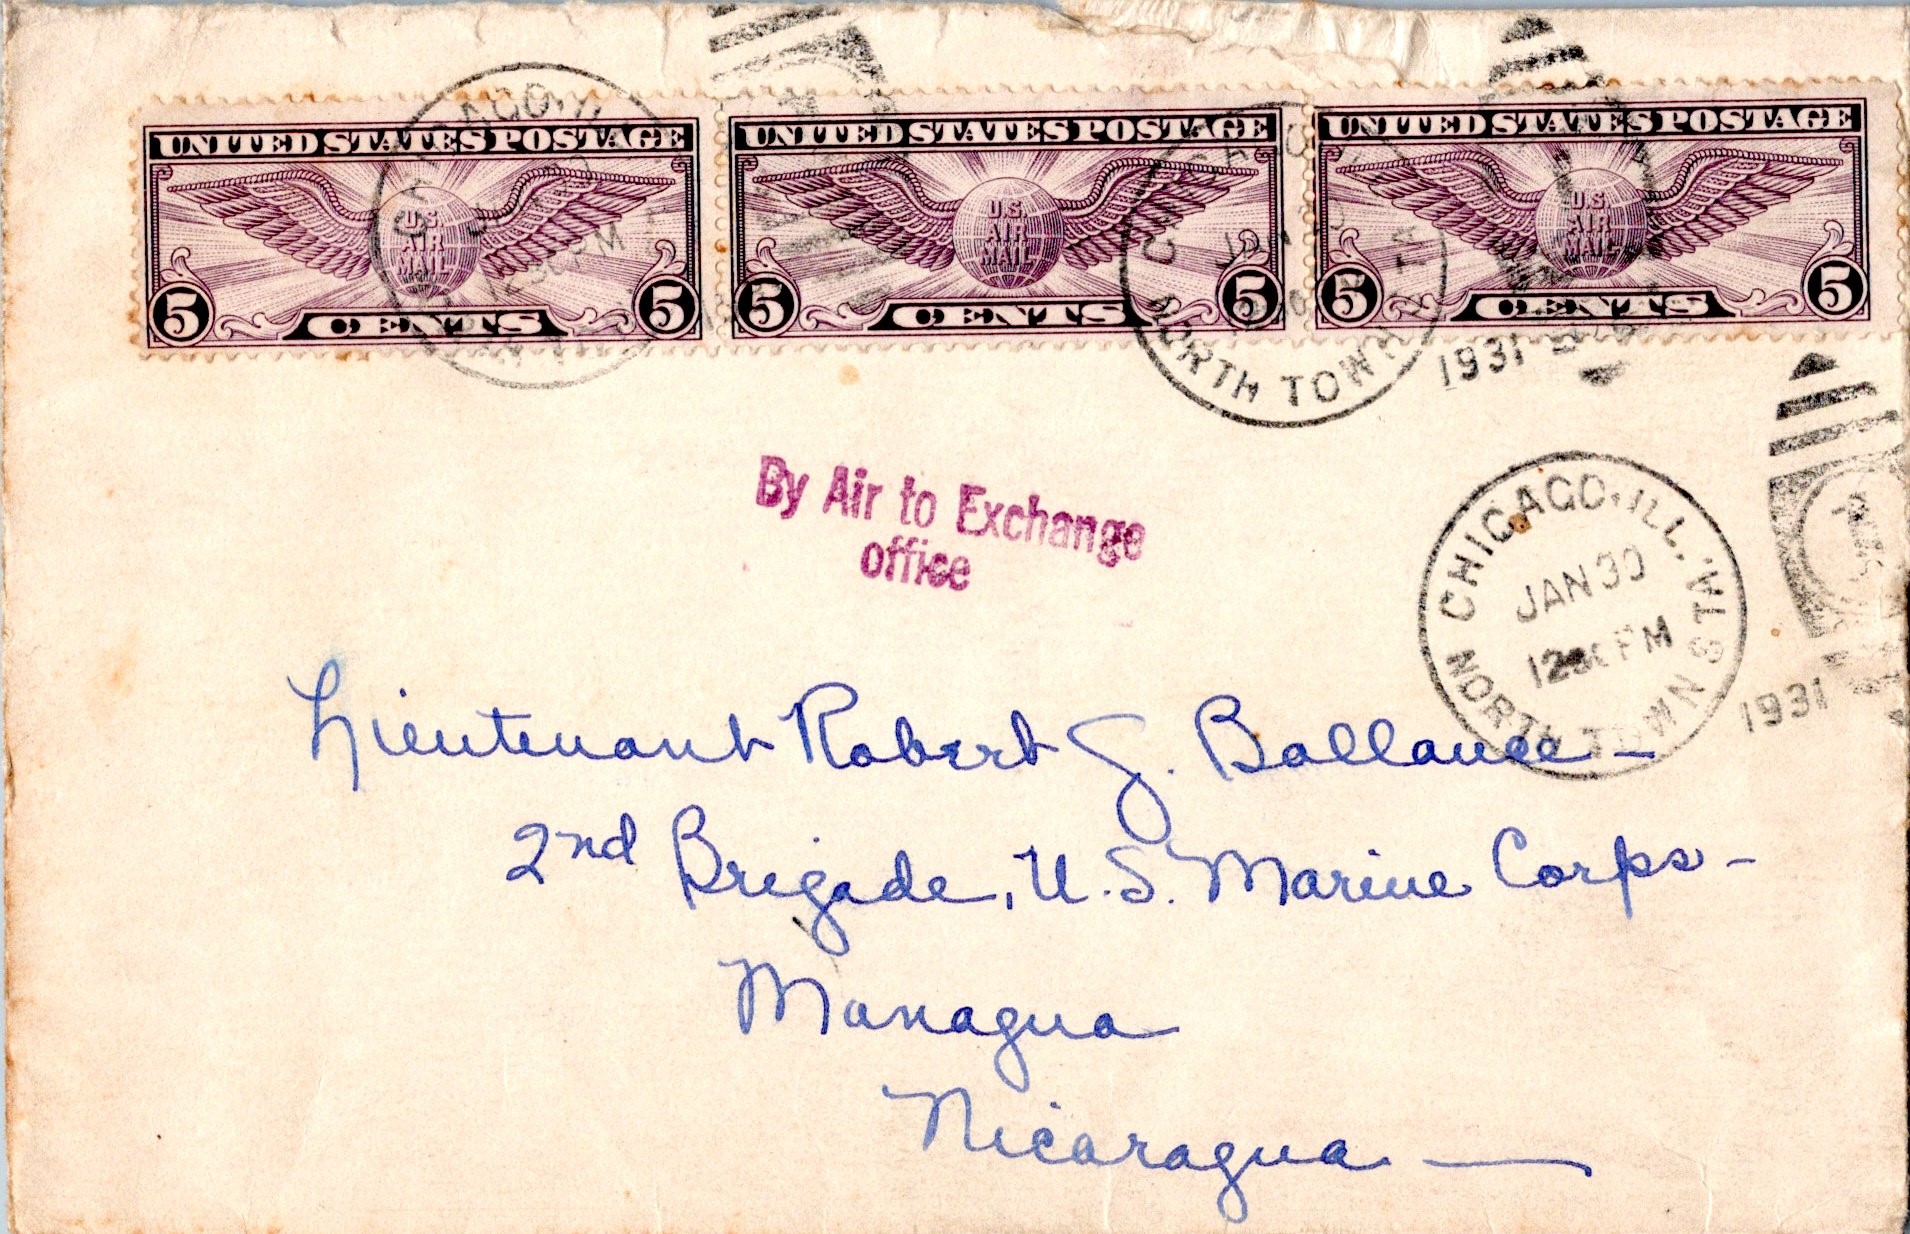 UNITED STATES POSTAGE
U.S.
AIR
MAIL
5 CENTS 5
UNITED STATES POSTAGE
U.S.
AIR
MAIL
5 CENTS 5
UNITED STATES POSTAGE
U.S.
AIR
MAIL
5 CENTS 5
CHICAGO, ILL.
1230 PM
NORTH TOWN STA.
1931
By Air to Exchange
office
CHICAGO, ILL.
JAN 30
1230 PM
NORTH TOWN STA.
1931
Lieutenant Robert G. Ballance -
2nd Brigade, U.S. Marine Corps -
Managua
Nicaragua —